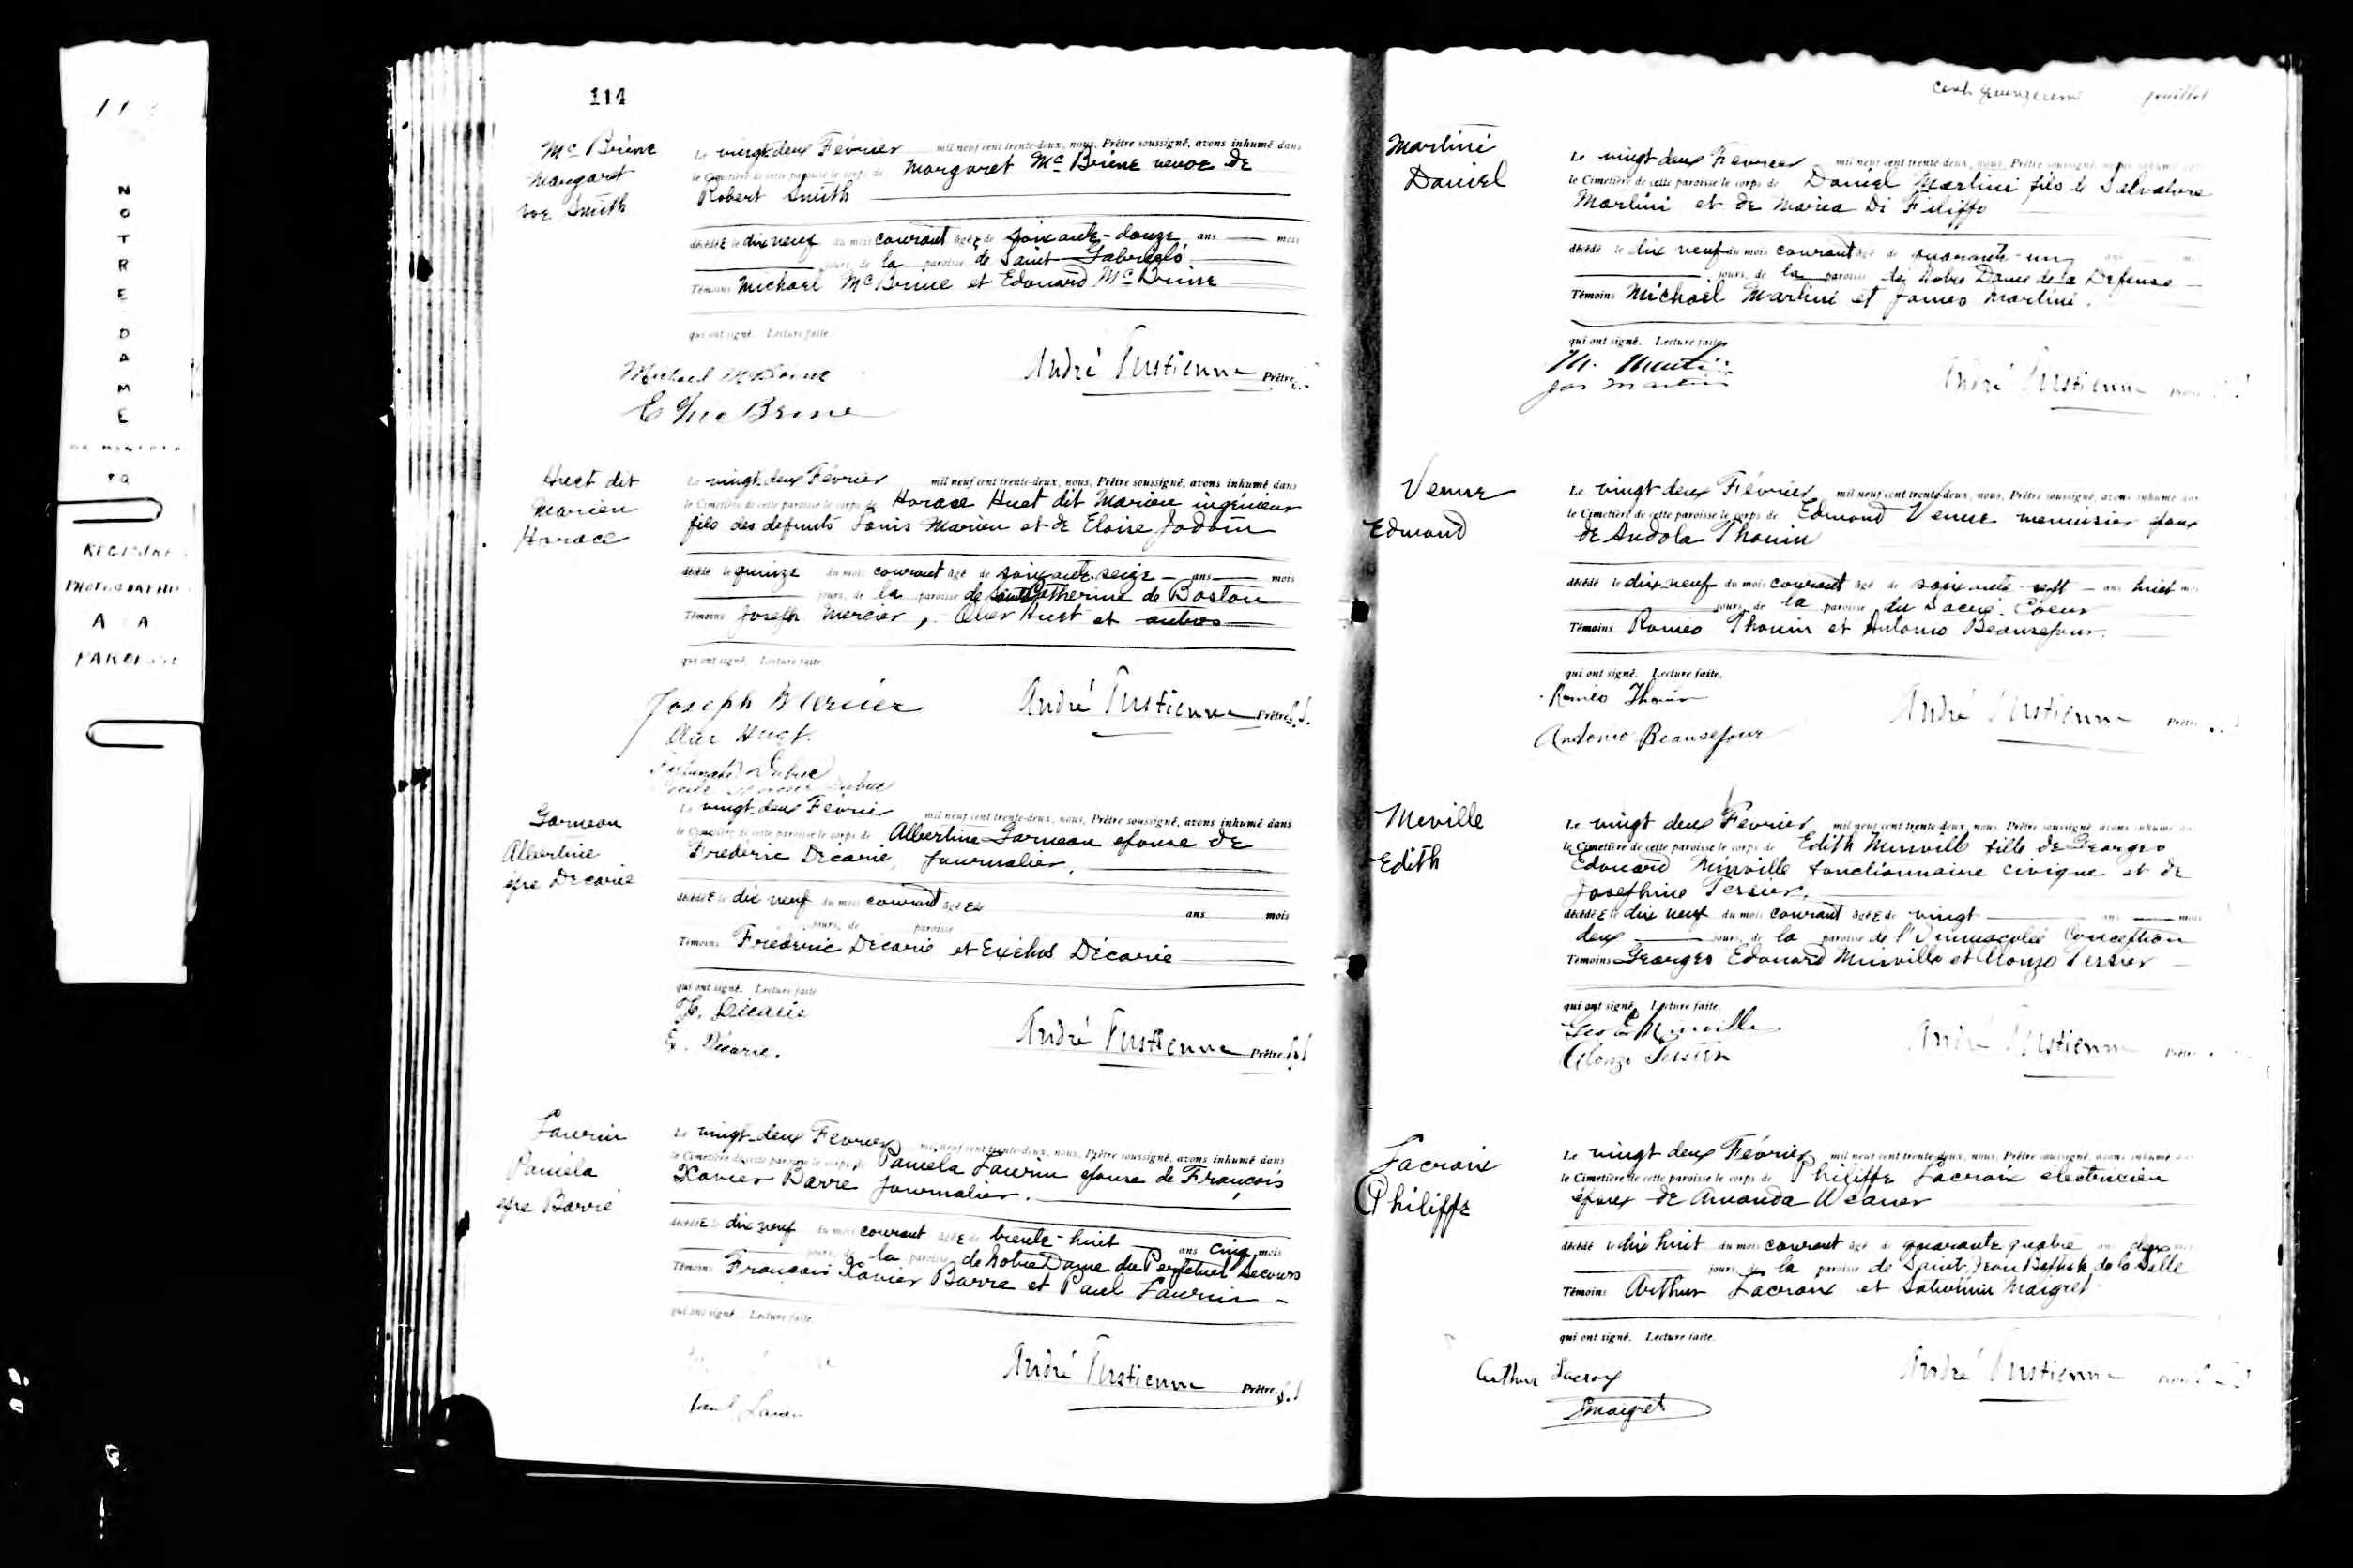 NOTRE DAME
REGISTRE
PHOTOGRAPHIE
A LA
PAROISSE
114
Mc Brine
Margaret
vve Smith
Le vingt-deux Février mil neuf cent trente-deux, nous, Prêtre soussigné, avons inhumé dans
le Cimetière de cette paroisse le corps de Margaret Mc Brine veuve de
Robert Smith
décédée le dix neuf du mois courant âgée de soixante-douze ans mois
jours, de la paroisse de Saint Gabriel
Témoins Michael McBrine et Edouard McBrine
qui ont signé. Lecture faite.
Michael McBrine
André Prêtre
E McBrine
Huet dit
Marien
Horace
Le vingt-deux Février mil neuf cent trente-deux, nous, Prêtre soussigné, avons inhumé dans
le Cimetière de cette paroisse le corps de Horace Huet dit Marien ingénieur
fils des défunts Louis Marien et de Eloise Jodoin
décédé le quinze du mois courant âgé de soixante-seize ans mois
jours, de la paroisse de Sainte Catherine de Boston
Témoins Joseph Mercier, Huet et autres
qui ont signé. Lecture faite.
Joseph Mercier
André Prêtre
Huet
Dubuc
Dubuc
Garneau
Albertine
épse Décarie
Le vingt-deux Février mil neuf cent trente-deux, nous, Prêtre soussigné, avons inhumé dans
le Cimetière de cette paroisse le corps de Albertine Garneau épouse de
Frédéric Décarie, journalier.
décédée le dix neuf du mois courant âgée de ans mois
jours, de paroisse
Témoins Frédéric Décarie et Décarie
qui ont signé. Lecture faite
F. Décarie
André Prêtre
E. Décarie.
Laurin
Paméla
épse Barré
Le vingt-deux Février mil neuf cent trente-deux, nous, Prêtre soussigné, avons inhumé dans
le Cimetière de cette paroisse le corps de Paméla Laurin épouse de François
Xavier Barré journalier.
décédée le dix neuf du mois courant âgée de trente-huit ans cinq mois
jours, de la paroisse de Notre Dame du Perpétuel Secours
Témoins François Xavier Barré et Paul Laurin
qui ont signé Lecture faite.
André Prêtre
Paul Laurin
feuillet
Martini
Daniel
Le vingt deux Février mil neuf cent trente-deux, nous, Prêtre soussigné, avons inhumé
le Cimetière de cette paroisse le corps de Daniel Martini fils de Salvatore
Martini et de Maria Di Filippo
décédé le dix neuf du mois courant âgé de quarante-un ans
jours, de la paroisse de Notre Dame de la Défense
Témoins Michael Martini et James Martini.
qui ont signé. Lecture faite.
M. Martini
Jas Martini
André
Venne
Edmond
Le vingt deux Février mil neuf cent trente-deux, nous, Prêtre soussigné, avons inhumé
le Cimetière de cette paroisse le corps de Edmond Venne menuisier époux
de Thouin
décédé le dix-neuf du mois courant âgé de soixante-sept ans huit
jours, de la paroisse du Sacré-Coeur
Témoins Romeo Thouin et Antonio Beausejour.
qui ont signé. Lecture faite.
Roméo Thouin
André
Antonio Beausejour
Miville
Edith
Le vingt deux Février mil neuf cent trente-deux, nous, Prêtre soussigné avons inhumé
le Cimetière de cette paroisse le corps de Edith Minville fille de Georges
Edouard Minville fonctionnaire civique et de
Josephine Tessier.
décédée le dix neuf du mois courant âgée de vingt ans mois
deux jours, de la paroisse de l'Immaculée Conception
Témoins Georges Edouard Minville et Alonzo Tessier
qui ont signé. Lecture faite.
Geo E Minville
André
Alonzo Tessier
Lacroix
Philippe
Le vingt deux Février mil neuf cent trente-deux, nous, Prêtre soussigné, avons inhumé
le Cimetière de cette paroisse le corps de Philippe Lacroix électricien
époux de Amanda Weaver
décédé le dix huit du mois courant âgé de quarante quatre ans deux
jours, de la paroisse de Saint Jean Baptiste de la Salle
Témoins Arthur Lacroix et Saturnin Maigret
qui ont signé. Lecture faite.
Arthur Lacroix
André
S Maigret